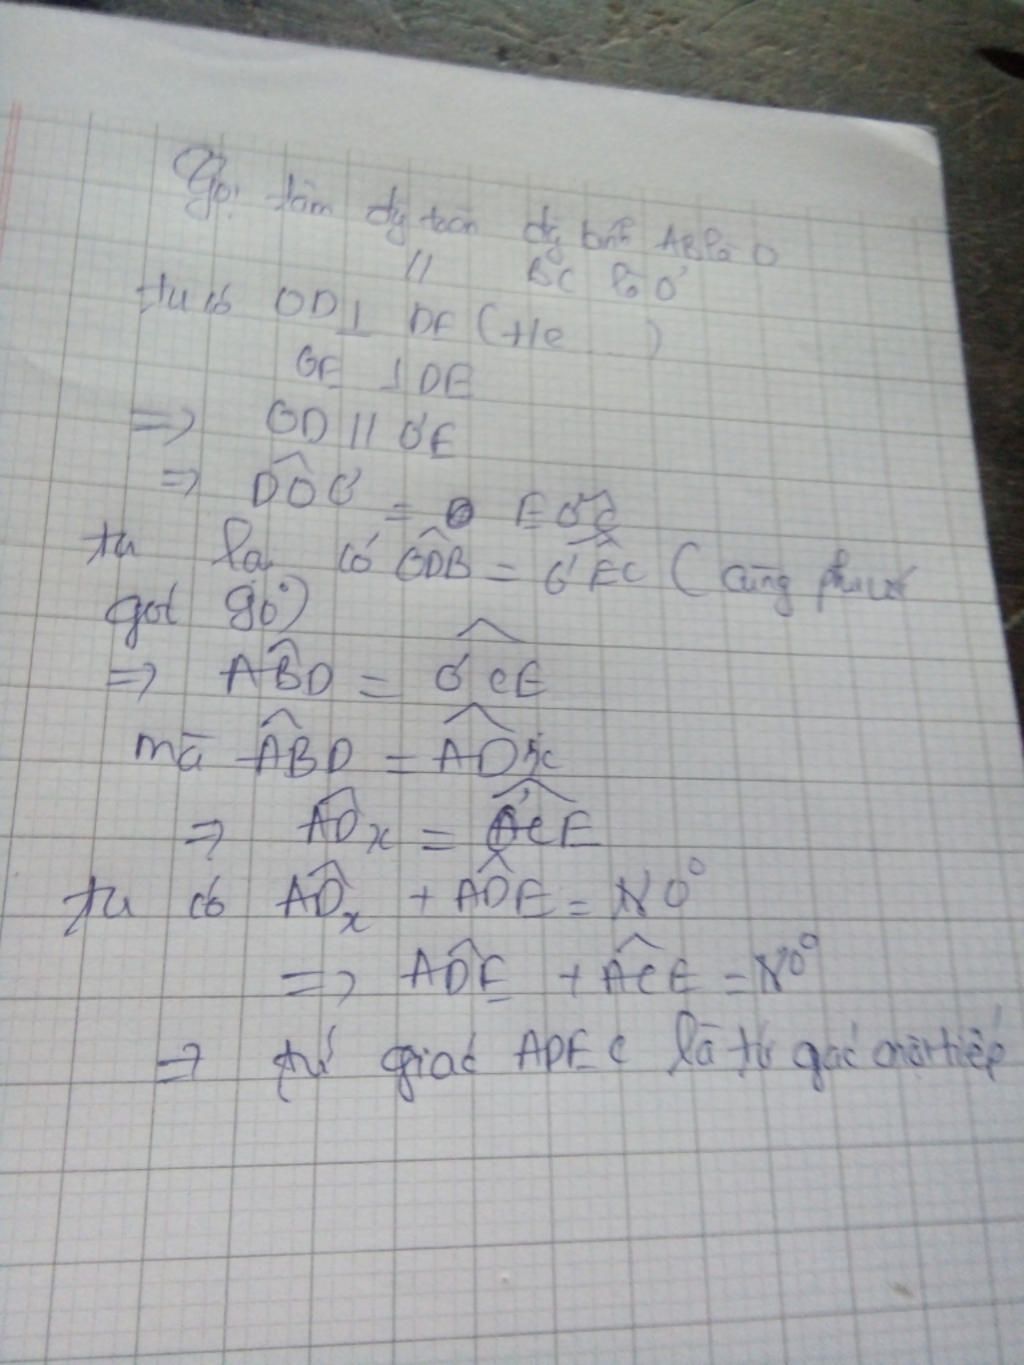 Gọi tâm đg tròn đg kính AB là O
// BC là O'
ta có OD ⊥ DE (
O'E ⊥ DE
=> OD // O'E
=> DOO' = EO'C
ta lại có ODB = O'EC (cùng phụ với
góc
=> ABD = O'CE
mà ABD = ADx
=> ADx = O'CE
ta có ADx + ADE = 180°
=> ADE + ACE = 180°
=> tứ giác ADEC là tứ gác nội tiếp